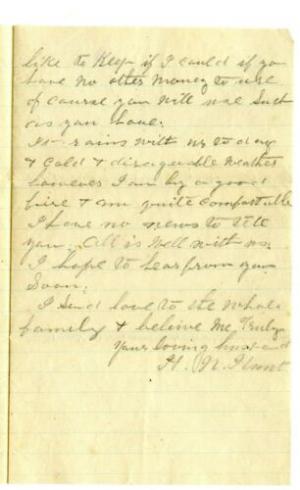 like to Keep if I could if you
have no other money to use
of course you will use such
as you have.
It rains with us today
& cold & disagreeable weather
however I am by a good
fire & am quite comfortable
I have no news to tell
you. All is Well with us.
I hope to hear from you
Soon.
I Send love to the whole
family & believe Me, Truly
Your loving husband